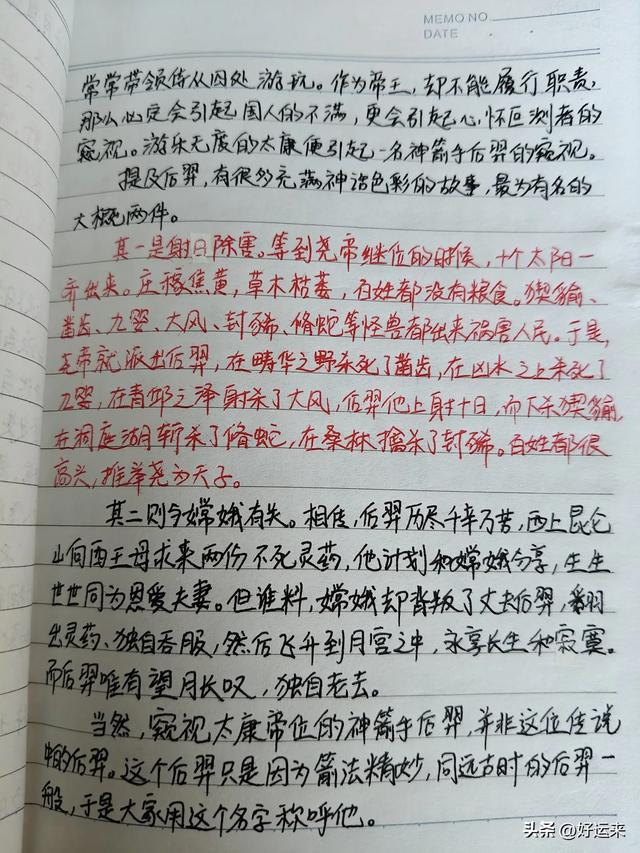 MEMO NO.
DATE
常常带领侍从四处游玩。作为帝王，却不能履行职责，
那么必定会引起国人的不满，更会引起心怀叵测者的
窥视。游乐无度的太康便引起一名神箭手后羿的窥视。
提及后羿，有很多充满神话色彩的故事，最为有名的
大概两件。
其一是射日除害。等到尧帝继位的时候，十个太阳一
齐出来。庄稼焦黄，草木枯萎，百姓都没有粮食。猰貐、
凿齿、九婴、大风、封豨、脩蛇等怪兽都出来祸害人民。于是，
尧帝就派出后羿，在畴华之野杀死了凿齿，在凶水之上杀死了
九婴，在青邱之泽射杀了大风，后羿他上射十日，而下杀猰貐，
在洞庭湖斩杀了脩蛇，在桑林擒杀了封豨。百姓都很
高兴，推举尧为天子。
其二则令嫦娥有关。相传，后羿历尽千辛万苦，西上昆仑
山向西王母求来两份不死灵药，他计划和嫦娥分享，生生
世世同为恩爱夫妻。但谁料，嫦娥却背叛了丈夫后羿，翻
出灵药、独自吞服，然后飞升到月宫之中，永享长生和寂寞。
而后羿唯有望月长叹，独自老去。
当然，窥视太康帝位的神箭手后羿，并非这位传说
中的后羿。这个后羿只是因为箭法精妙，同远古时的后羿一
般，于是大家用这个名字称呼他。
头条 @好运来